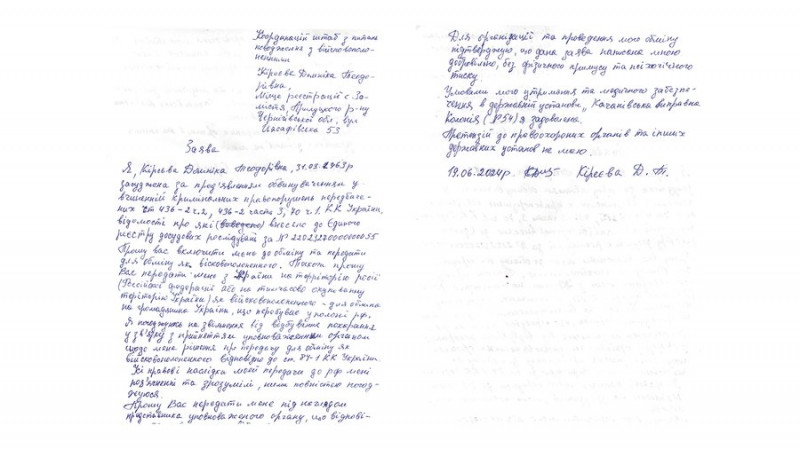 Координацій штаб з питань
поводження з військовополо-
неними
Кірєєва Даніїла Теодо-
рівна,
Місце реєстрації с. За-
містя, Прилуцького р-ну
Чернігівської обл. вул
53
Заява
Я, Кірєєва Теодорівна, 31.03.1963р
засуджена за пред'явленим обвинуваченням у
вчиненні кримінальних правопорушень передбаче-
них ст 436-2 ч.2, 436-2 части 3, 70 ч.1. КК України,
відомості про які внесено до Єдиного
реєстру досудових розслідувань за №
Прошу вас включити мене до обміну та передати
для обміну як військовополоненого. Також прошу
Вас передати мене з України на територію росії
(Російської Федерації або на тимчасово окуповану
територію України) як військовополоненого - для обміна
на громадянина України, що перебуває у полоні рф.
Я погоджуюсь на звільнення від відбування покарання
у зв'язку з прийняттям уповноваженим органом
щодо мене рішення про передачу для обміну як
військовополоненого відповідно до ст. 84-1 КК України.
Усі правові наслідки моєї передачи до рф мені
роз'яснені та зрозумілі, ними повністю погод-
жуюся.
Прошу Вас передати мене під наглядом
представника уповноваженого органу, що відпові-
Для організації та проведення мого обміну
підтверджую, що дана заява написана мною
добровільно, без фізичного примусу та психологічного
тиску.
Умовами мого утримання та медичного забезпе-
чення в державній установі „Качанівська виправна
колонія (№54) я задоволена.
Претензій до правоохороних органів та інших
державних установ не маю.
19.06.2024р. Кірєєва Д. Т.